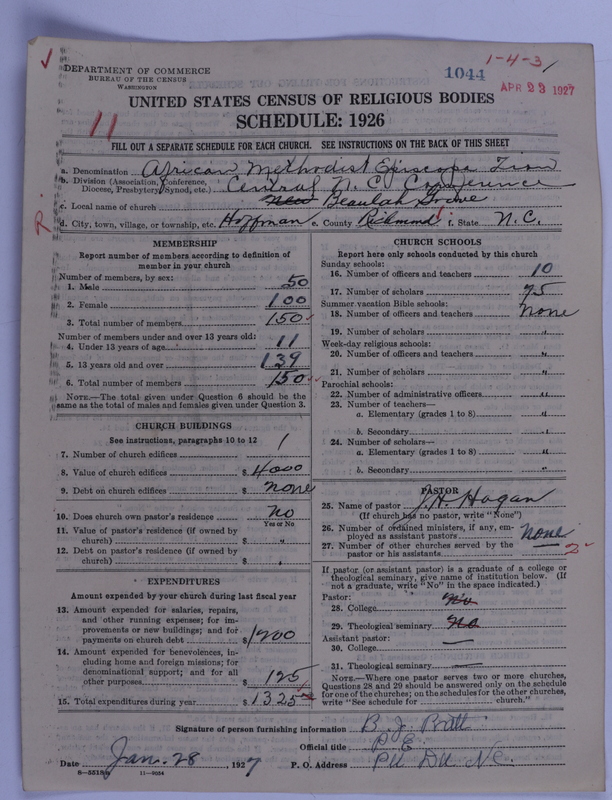 1-4-3
1044
APR 23 1927
DEPARTMENT OF COMMERCE
BUREAU OF THE CENSUS
WASHINGTON
UNITED STATES CENSUS OF RELIGIOUS BODIES
SCHEDULE: 1926
11
FILL OUT A SEPARATE SCHEDULE FOR EACH CHURCH. SEE INSTRUCTIONS ON THE BACK OF THIS SHEET
a. Denomination African Methodist Episcopa Zion
b. Division (Association, Conference, Diocese, Presbytery, Synod, etc.) Central N.C. Conference
c. Local name of church New Beaulah Grove
R
d. City, town, village, or township, etc. Hoffman e. County Richmond f. State N.C.
MEMBERSHIP
Report number of members according to definition of
member in your church
Number of members, by sex:
1. Male 50
2. Female 100
3. Total number of members 150
Number of members under and over 13 years old:
4. Under 13 years of age 11
5. 13 years old and over 139
6. Total number of members 150
NOTE.—The total given under Question 6 should be the
same as the total of males and females given under Question 3.
CHURCH BUILDINGS
See instructions, paragraphs 10 to 12
7. Number of church edifices 1
8. Value of church edifices $ 4000
9. Debt on church edifices $ none
10. Does church own pastor's residence no
Yes or No
11. Value of pastor's residence (if owned by
church) $ "
12. Debt on pastor's residence (if owned by
church) $ "
EXPENDITURES
Amount expended by your church during last fiscal year
13. Amount expended for salaries, repairs,
and other running expenses; for im-
provements or new buildings; and for
payments on church debt $ 1200
14. Amount expended for benevolences, in-
cluding home and foreign missions; for
denominational support; and for all
other purposes $ 125
15. Total expenditures during year $ 1325
CHURCH SCHOOLS
Report here only schools conducted by this church
Sunday schools:
16. Number of officers and teachers 10
17. Number of scholars 75
Summer vacation Bible schools:
18. Number of officers and teachers none
19. Number of scholars "
Week-day religious schools:
20. Number of officers and teachers "
21. Number of scholars "
Parochial schools:
22. Number of administrative officers "
23. Number of teachers—
a. Elementary (grades 1 to 8) "
b. Secondary "
24. Number of scholars—
a. Elementary (grades 1 to 8) "
b. Secondary "
PASTOR
25. Name of pastor J.H. Hagan
(If church has no pastor, write "None")
26. Number of ordained ministers, if any, em-
ployed as assistant pastors none
27. Number of other churches served by the
pastor or his assistants 2
If pastor (or assistant pastor) is a graduate of a college or
theological seminary, give name of institution below. (If
not a graduate, write "No" in the space indicated.)
Pastor:
28. College No
29. Theological seminary No
Assistant pastor:
30. College
31. Theological seminary
NOTE.—Where one pastor serves two or more churches,
Questions 28 and 29 should be answered only on the schedule
for one of the churches; on the schedules for the other churches,
write "See schedule for church."
Signature of person furnishing information B. J. Pratt
Official title P.E.
Date Jan. 28, 1927 P. O. Address
8-5518 11-9054